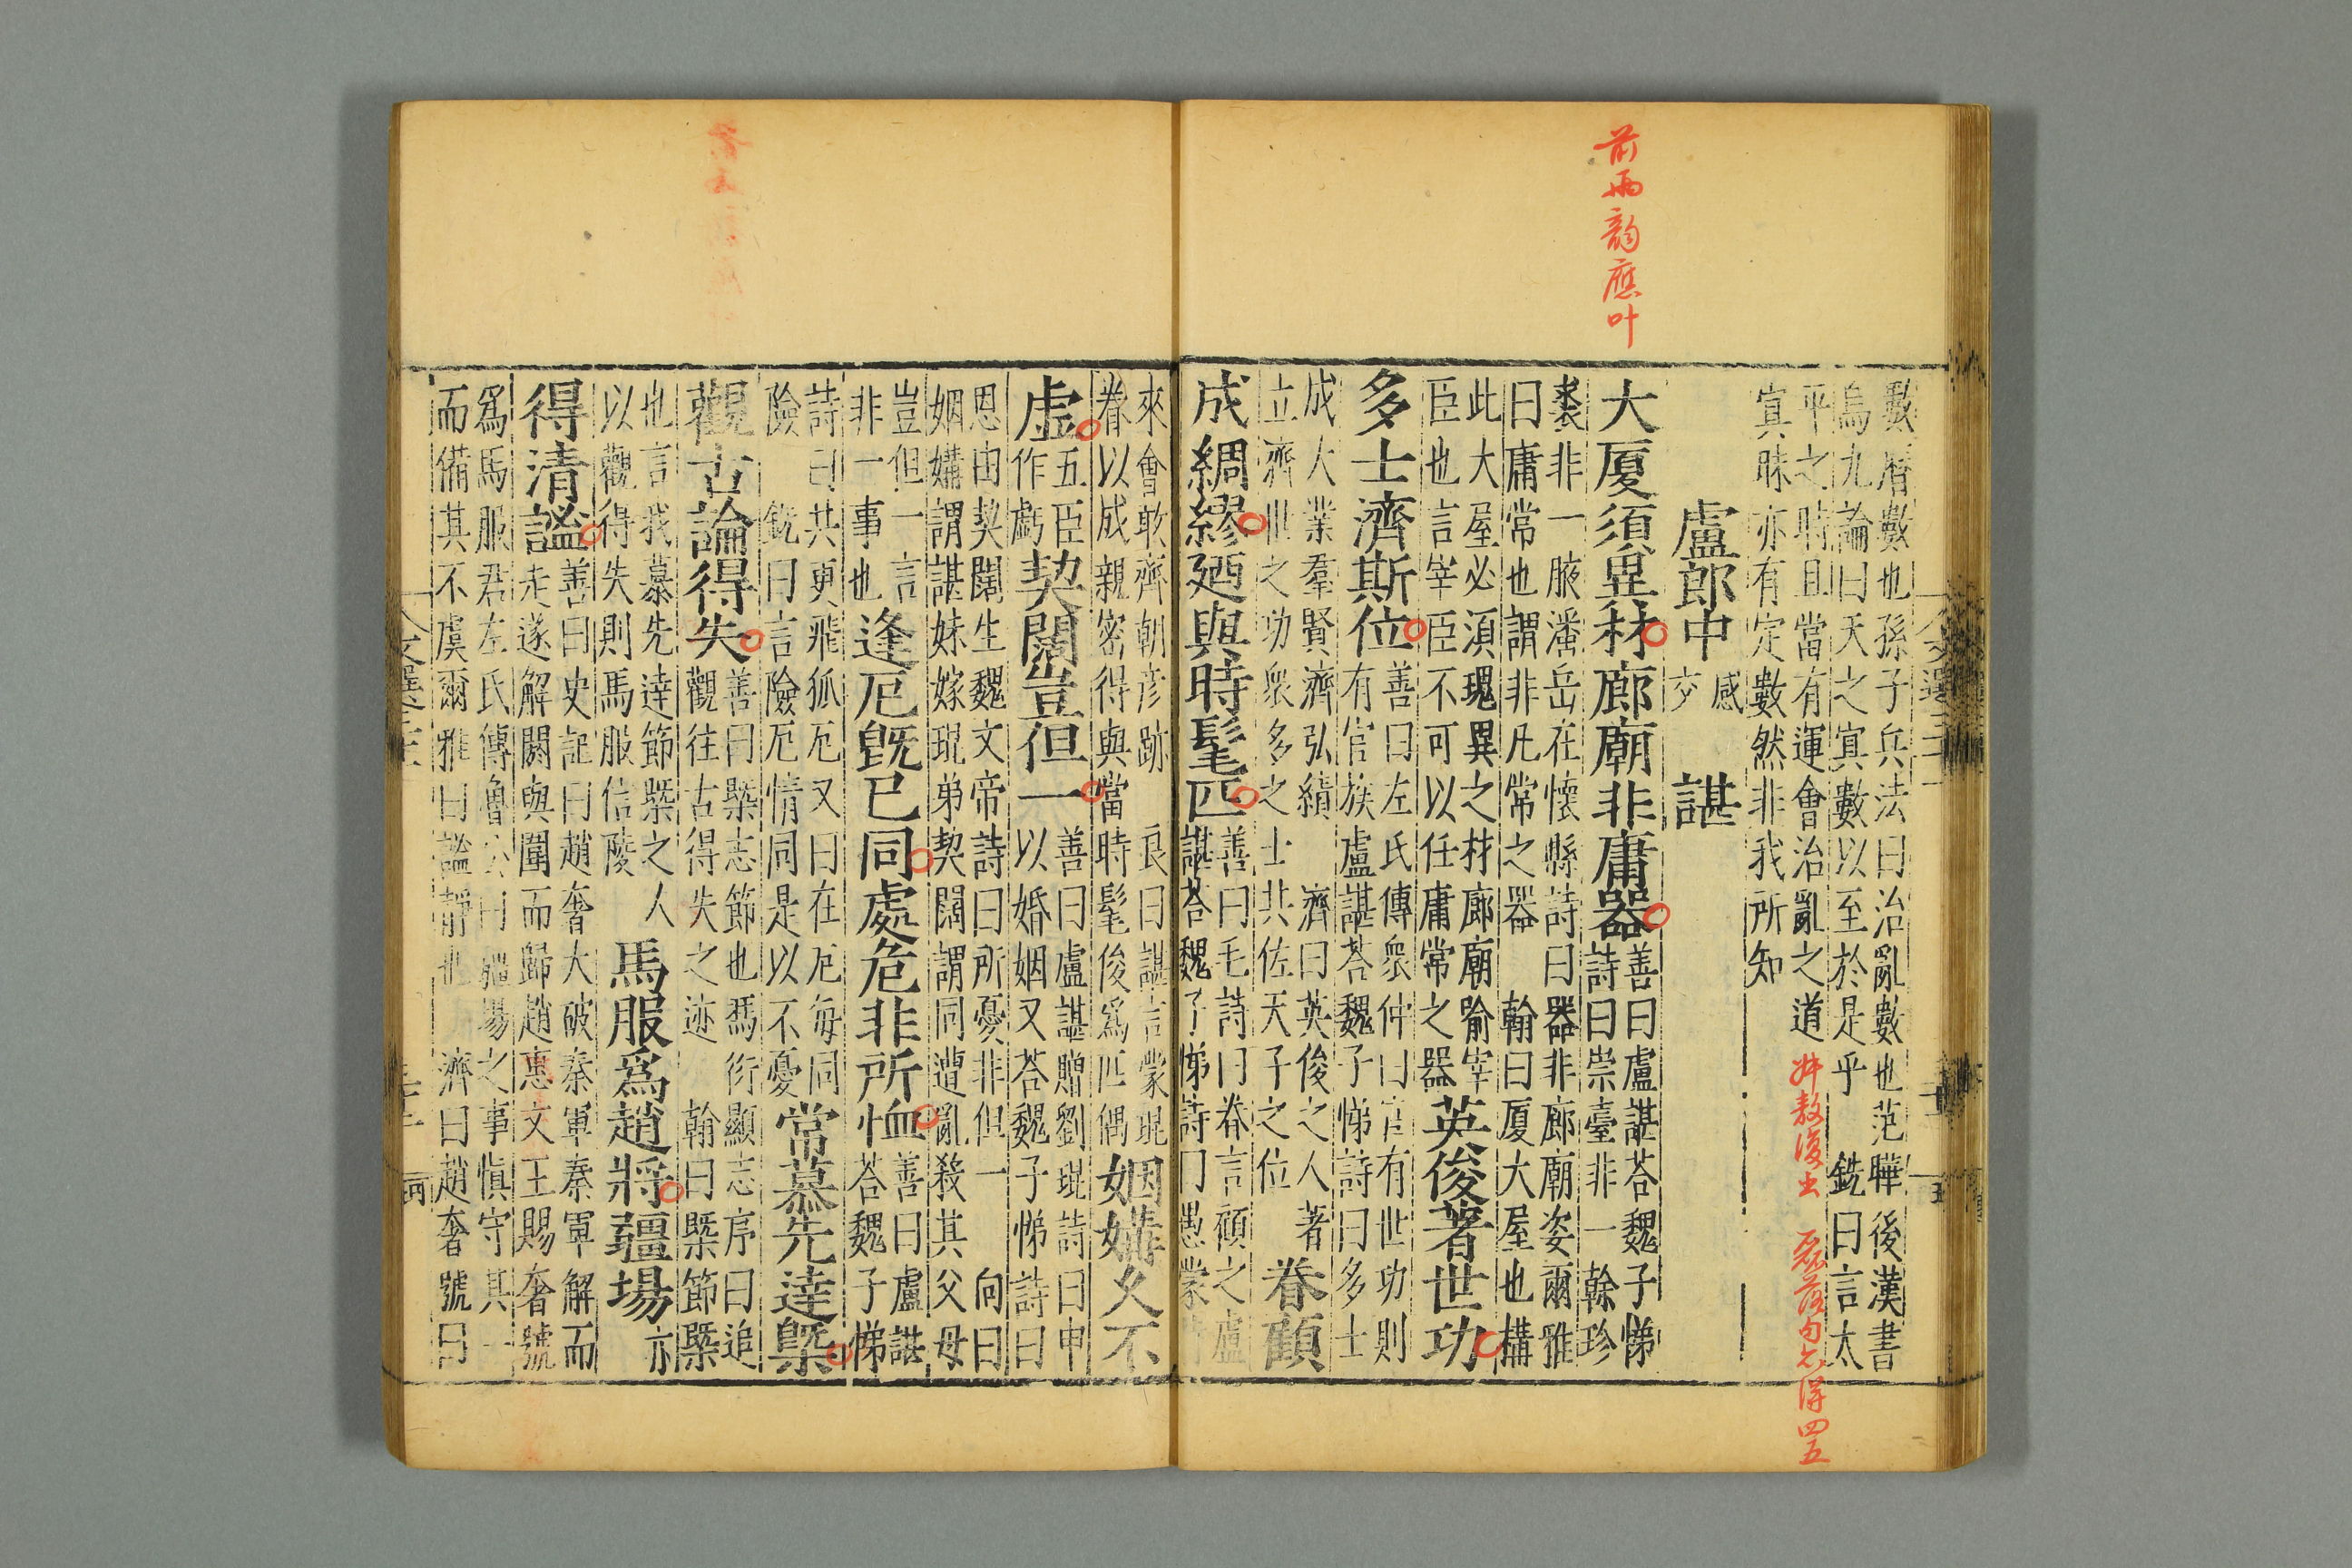 前兩韵應叶
數曆數也孫子兵法曰治亂數也范曄後漢書
烏九論曰天之寘數以至於是乎 銑曰言太
平之時且當有運會治亂之道
寘昧亦有定數然非我所知
盧郎中 感
交 諶
大厦須異材廊廟非庸器
善曰盧諶荅魏子悌
詩曰崇臺非一幹珍
裘非一腋潘岳在懷縣詩曰器非廊廟姿爾雅
曰庸常也謂非凡常之器 翰曰厦大屋也構
此大屋必須瓌異之材廊廟喻宰
臣也言宰臣不可以任庸常之器
英俊著世功
多士濟斯位
善曰左氏傳衆仲曰官有世功則
有官族盧諶荅魏子悌詩曰多士
成大業羣賢濟弘績 濟曰英俊之人著
立濟世之功衆多之士共佐天子之位
眷顧
成綢繆廼與時髦匹
善曰毛詩曰眷言顧之盧
諶荅魏子悌詩曰愚蒙
來會敢齊朝彦跡 良曰諶言蒙琨
眷以成親密得與當時髦俊爲匹偶
姻媾久不
虚
五臣
作虧
契闊豈但一
善曰盧諶贈劉琨詩曰申
以婚姻又荅魏子悌詩曰
恩由契闊生魏文帝詩曰所憂非但一 向曰
姻媾謂諶妹嫁琨弟契闊謂同遭亂殺其父母
豈但一言
非一事也
逢厄旣已同處危非所恤
善曰盧諶
荅魏子悌
詩曰共更飛狐厄又曰在厄每同
險 銑曰言險厄情同是以不憂
常慕先達槩
觀古論得失
善曰槩志節也馮衍顯志序曰追
觀往古得失之迹 翰曰槩節槩
也言我慕先達節槩之人
以觀得失則馬服信陵
馬服爲趙將疆場
亦
得清謐
善曰史記曰趙奢大破秦軍秦軍解而
走遂解閼與圍而歸趙惠文王賜奢號
爲馬服君左氏傳魯公曰疆場之事愼守其一
而備其不虞爾雅曰謐靜也 濟曰趙奢號曰